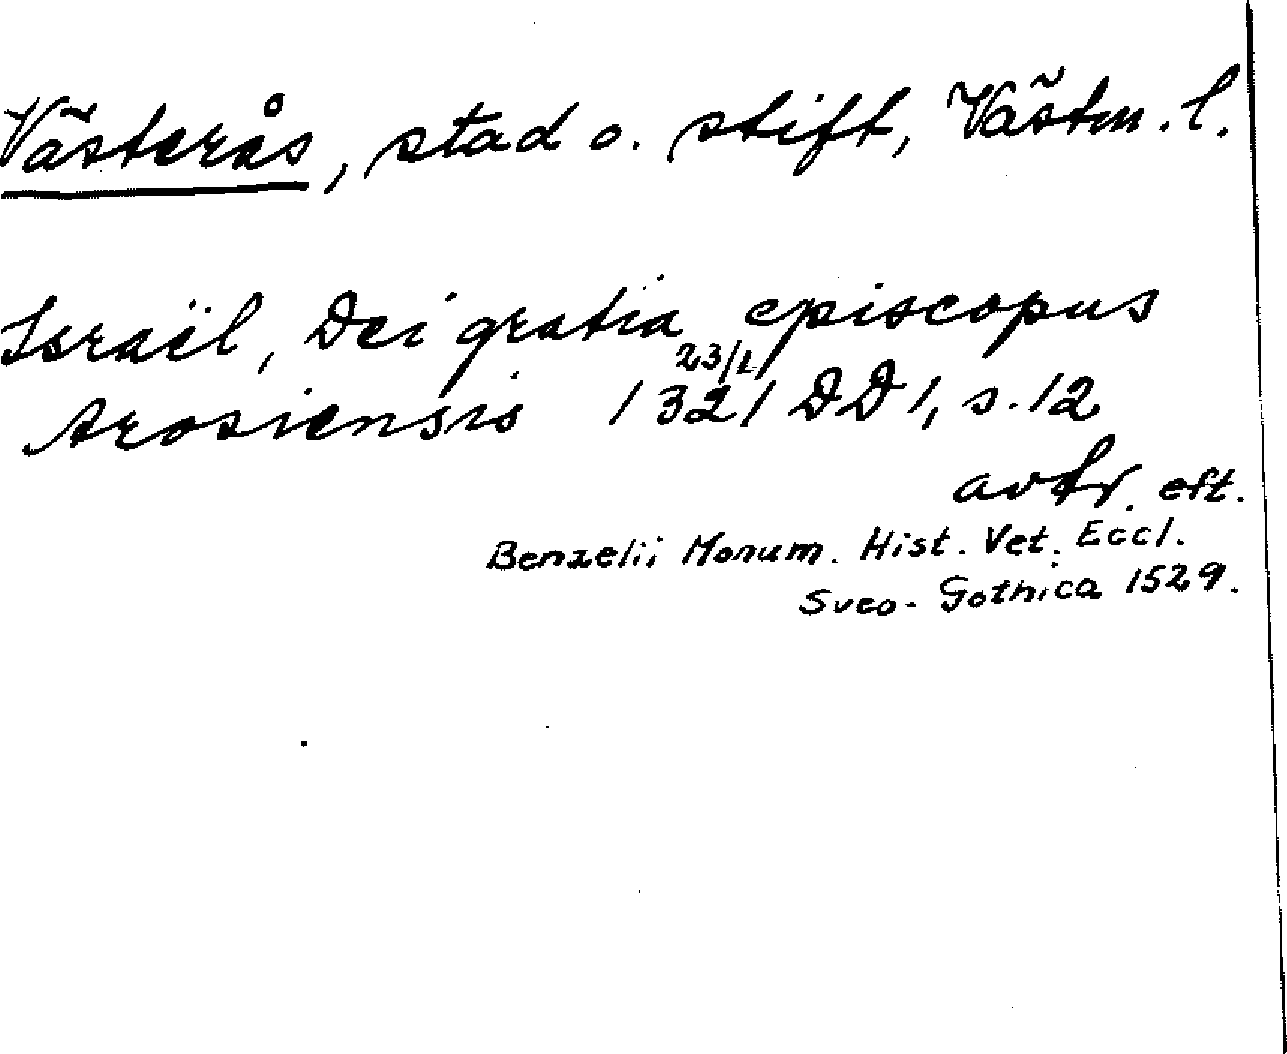 Västerås, stad o. stift, Västm. l.
Israël, Dei gratia episcopus
23/1
Arosiensis 1321 DD 1, s. 12
avskr. eft.
Benzelii Monum. Hist. Vet. Eccl.
Sveo-Gothica 1529.